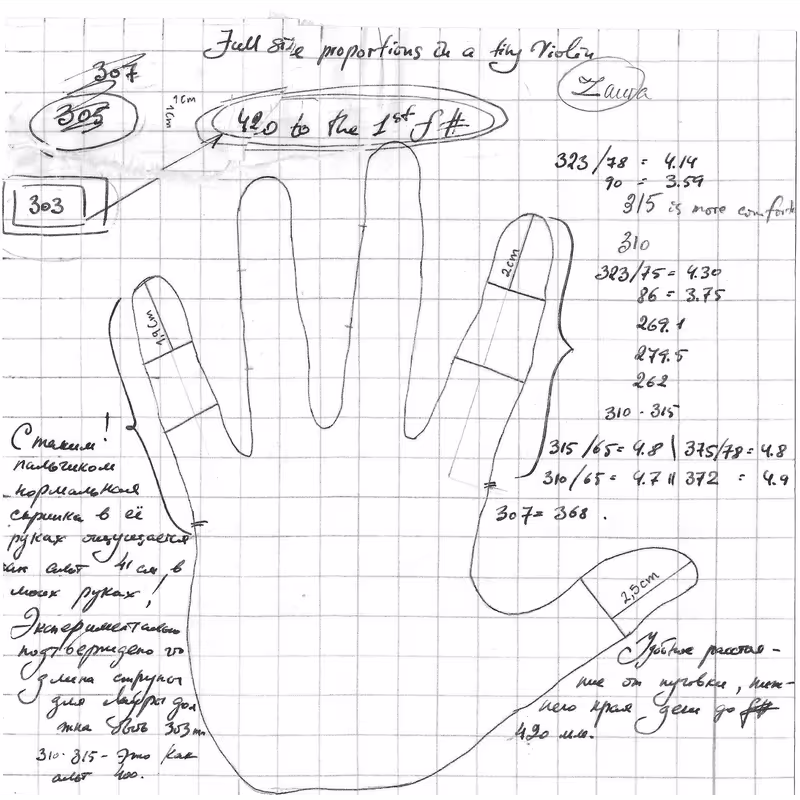 Full size proportions in a tiny Violin
307
305
1cm
1cm
420 to the 1st f#
303
323/78 = 4.14
90 = 3.59
315 is more comfort
310
323/75 = 4.30
86 = 3.75
269.1
279.5
262
310 - 315
315/65 = 4.8 \ 375/78 = 4.8
310/65 = 4.7 || 372 = 4.9
307 = 368 .
1,9cm
2cm
2,5cm
С таким!
пальчиком
нормальная
скрипка в её
руках ощущается
как альт 41 см в
моих руках!
Экспериментально
подтверждено что
длина струны
для Лауры дол
жна быть 303 mm
310-315 - это как
альт 400.
Удобное расстоя-
ние от пуговки, ниж-
него края деки до f#
420 мм.